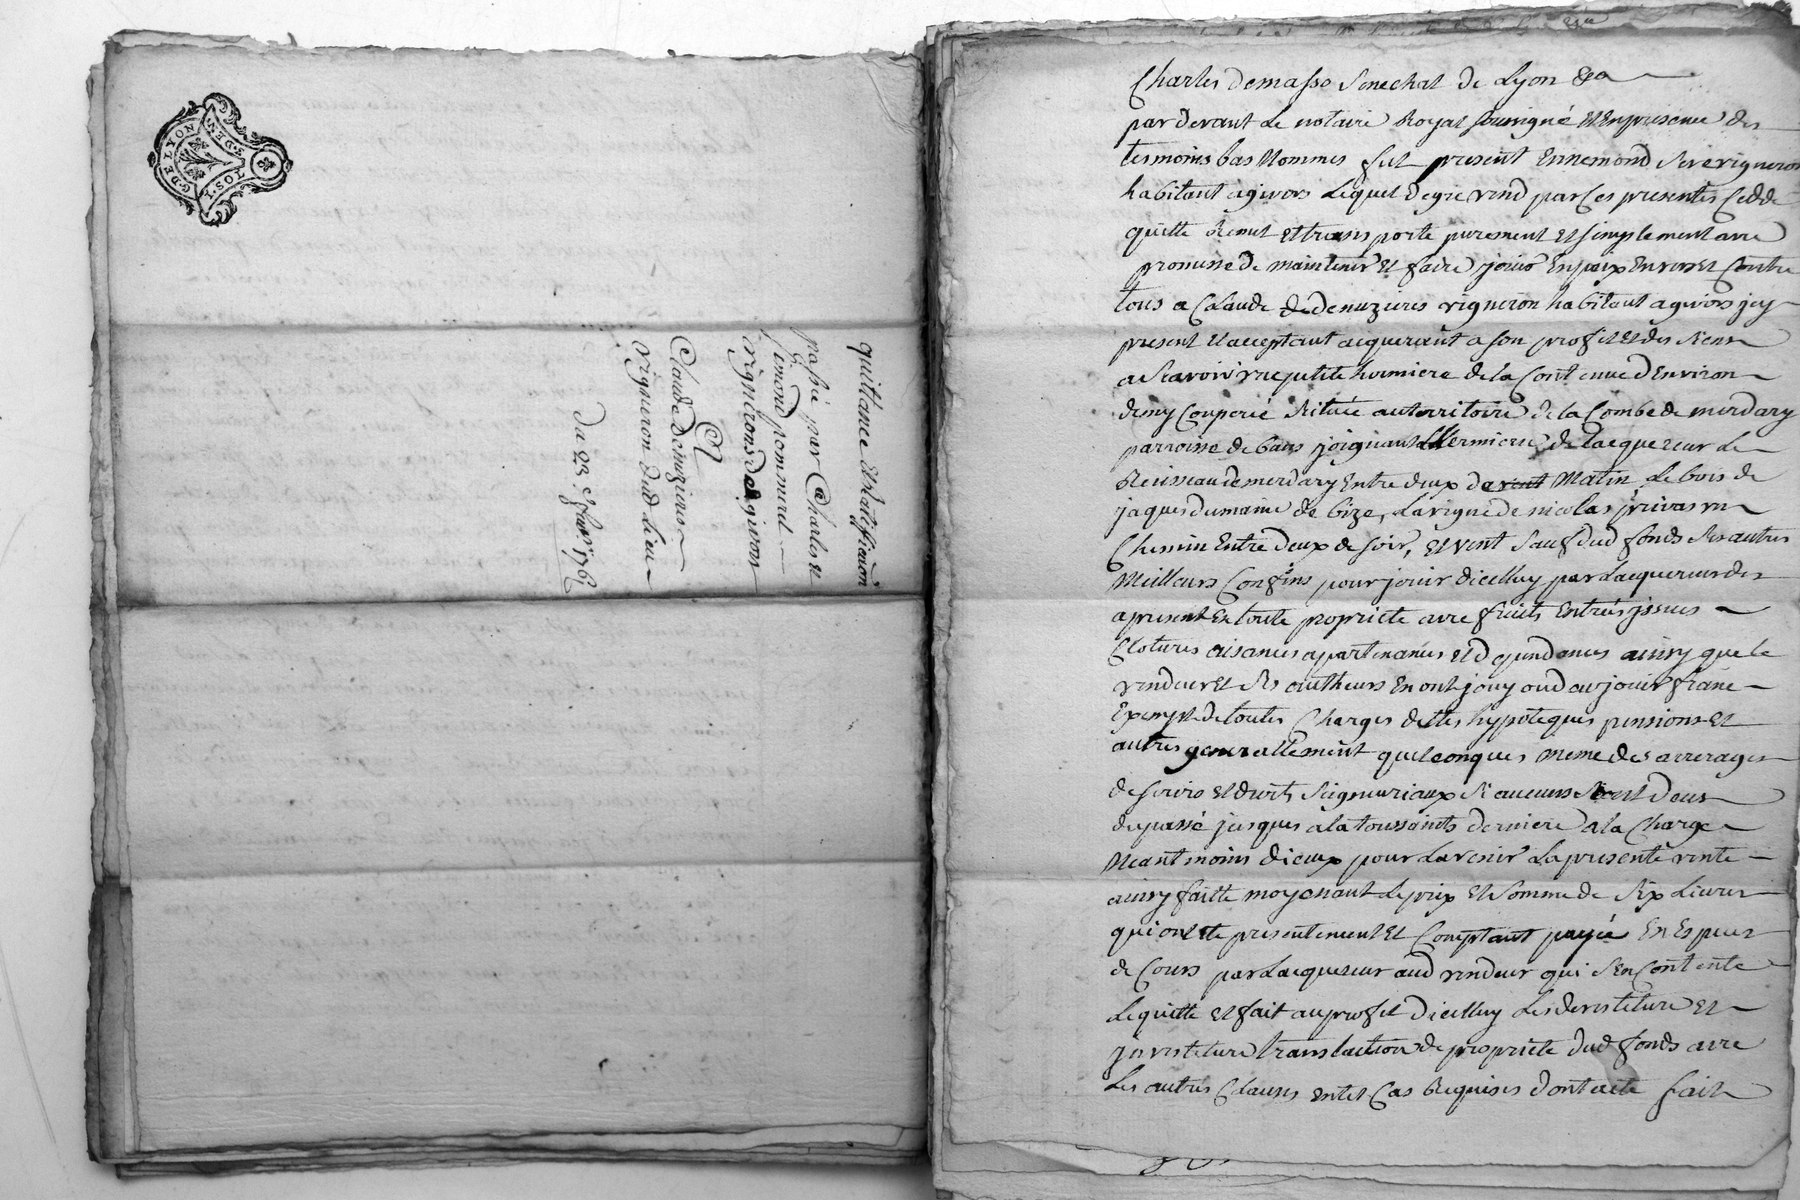 G. DE LYON
S. D. EN.
TOST.
quittance Et Ratiffication
passé par Charles Et
Simond pommerel
vignerons de givors
A
Claude Demuzieres
vigneron dud Lieu
Du 23 1762
Charles Demasso Senechal de Lyon &a
par devant Le notaire Royal soussigné Et En presence des
temoins bas Nommes fut present Ennemond vigneron
habitant a givors Lequel De gre vend par Ces presentes Cedde
quitte Remet Et trans porte purement Et simplement avec
promesse de maintenir Et faire jouir En paix Envers Et Contre
tous a Claude de demuzieres vigneron habitant a givors jcy
present Et acceptant acquerant a son profit Et des siens
a Scavoir une petite hermiere de la Contenue D'Environ
demy Couperée Située au territoire de la Combe de merdary
parroisse de bans joignant L'hermiere de Lacquereur Le
Ruisseau de merdary Entre deux de Matin Le bois de
jaques dumaine de bize, La vigne de nicolas privas un
Chemin Entre Deux de soir, Et vent Sauf dud fonds Ses autres
Meilleurs Confins pour jouir dicelluy par Lacquereur des
a present En toute propriete avec fruits Entrées jssues
Clotures aisances apartenances Et Dependances ainsy que le
vendeur Et Ses autheurs En ont jouy ou du jouir franc
Exempt de toutes Charges dettes hypoteques pensions Et
autres generallement quelconques meme des arrerages
de servis Et droits Seigneuriaux Si aucuns Sont Deus
du passé jusques a la toussaints derniere a la Charge
Neantmoins diceux pour Lavenir La presente vente
ainsy faitte moyenant Le prix Et Somme de Six Livres
qui ont Ete presentement Et Comptant payée En Especes
de Cours par Lacquereur aud vendeur qui S'En Contente
Le quitte Et fait au profit Dicelluy Les devestiture Et
jnvestiture translation de propriete dud fonds avec
Les autres Clauses En tel Cas Requises Dont acte fait